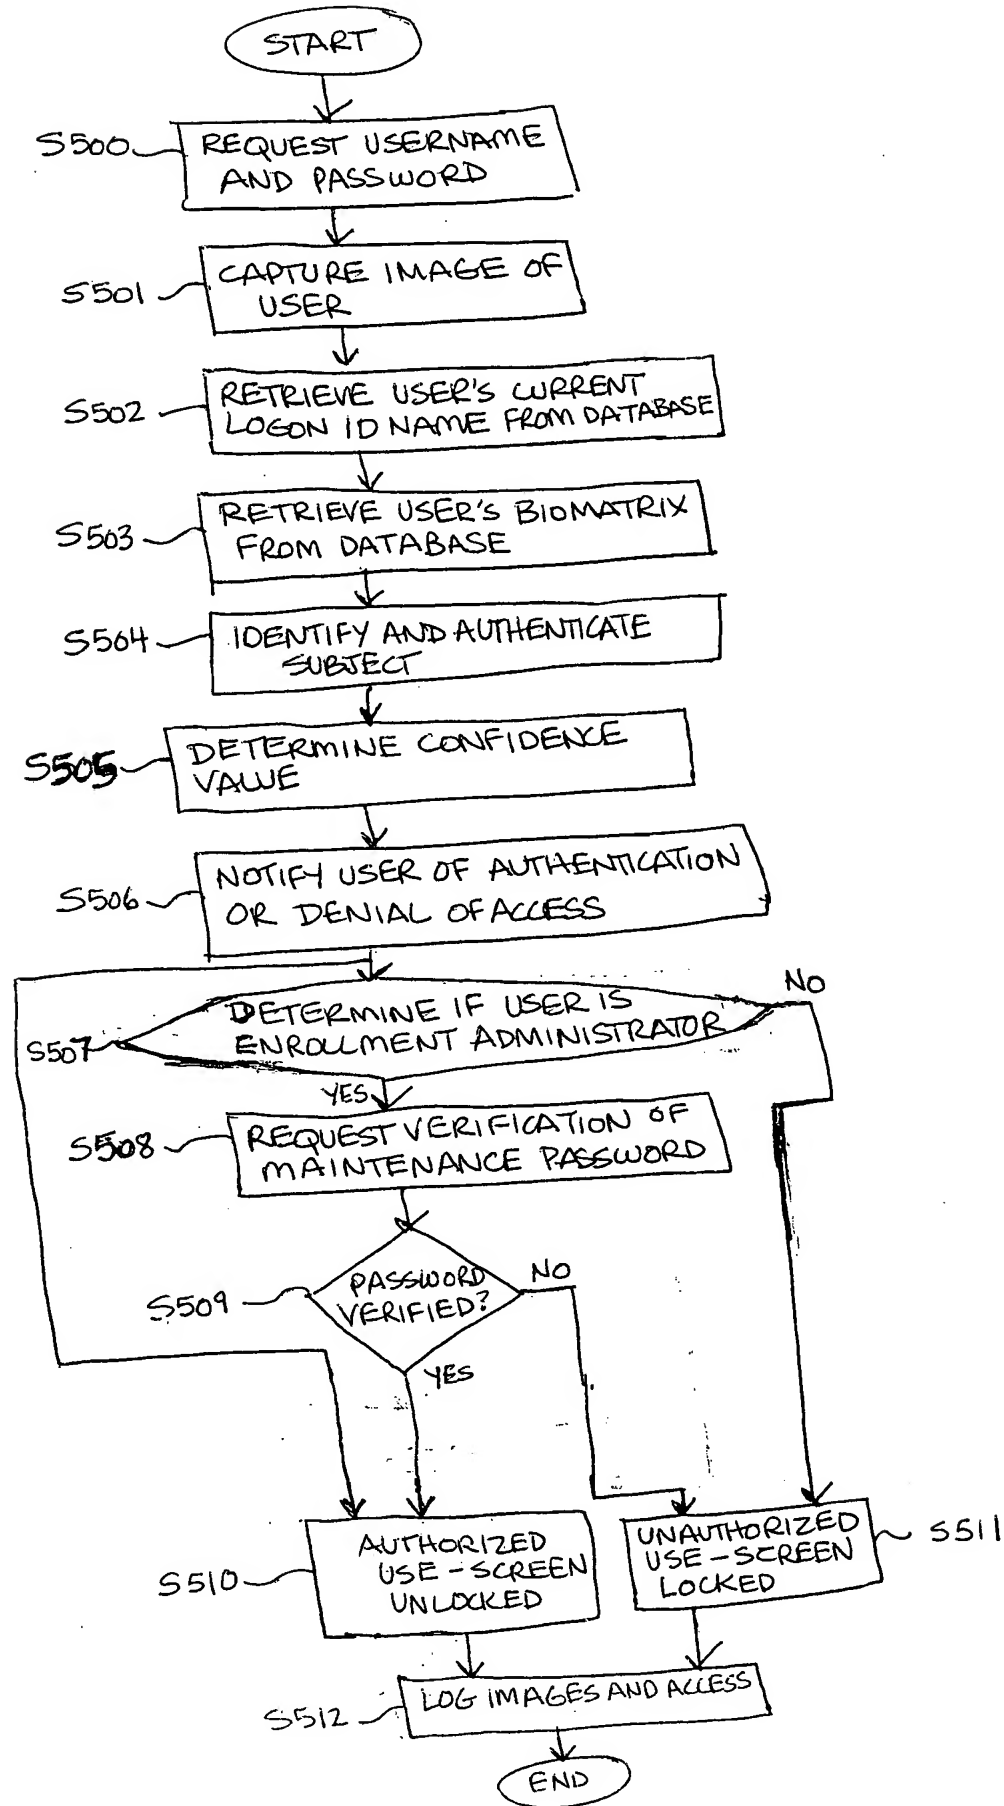 START
S500
REQUEST USERNAME
AND PASSWORD
S501
CAPTURE IMAGE OF
USER
S502
RETRIEVE USER'S CURRENT
LOGON ID NAME FROM DATABASE
S503
RETRIEVE USER'S BIOMATRIX
FROM DATABASE
S504
IDENTIFY AND AUTHENTICATE
SUBJECT
S505
DETERMINE CONFIDENCE
VALUE
S506
NOTIFY USER OF AUTHENTICATION
OR DENIAL OF ACCESS
S507
DETERMINE IF USER IS
ENROLLMENT ADMINISTRATOR
NO
YES
S508
REQUEST VERIFICATION OF
MAINTENANCE PASSWORD
S509
PASSWORD
VERIFIED?
NO
YES
S510
AUTHORIZED
USE-SCREEN
UNLOCKED
UNAUTHORIZED
USE-SCREEN
LOCKED
S511
S512
LOG IMAGES AND ACCESS
END